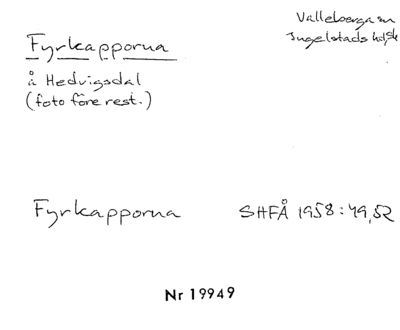 Valleberga sn
Ingelstads hd, Sk
Fyrkapporna
å Hedvigsdal
(foto före rest.)
Fyrkapporna SHFÅ 1958:49,52
Nr 19949